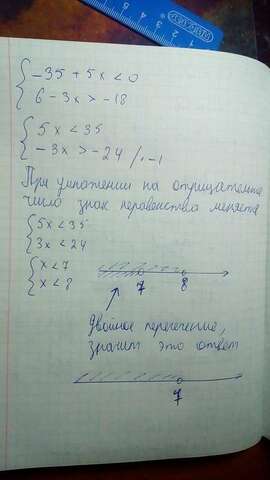 -35 + 5x < 0
6 - 3x > -18
5x < 35
-3x > -24 / · -1
При умножении на отрицательное
число знак неравенства меняется
5x < 35
3x < 24
x < 7
x < 8
7 8
двойное пересечение,
значит это ответ
7